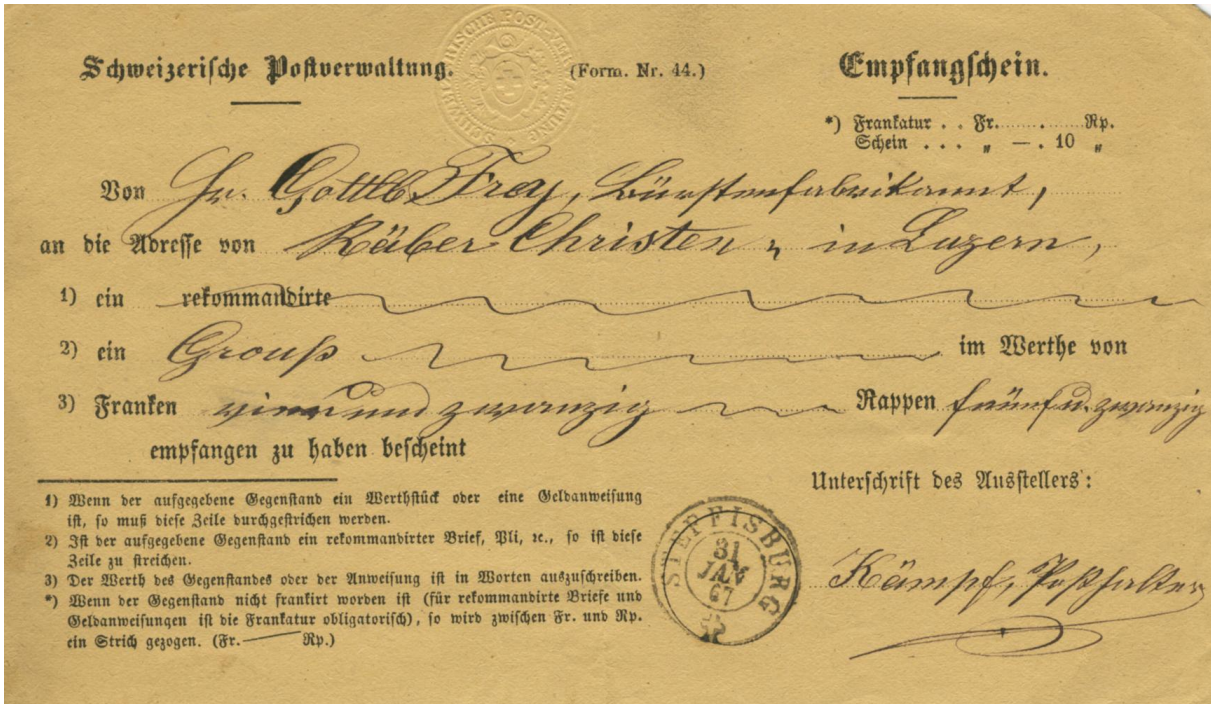 Schweizerische Postverwaltung.
SCHWEIZERISCHE POST-VERWALTUNG
(Form. Nr. 44.)
Empfangschein.
*) Frankatur . . Fr. . Rp.
Schein . . . „ — . 10 „
Von Hr. Gottlb. Frey, Bürstenfabrikannt,
an die Adresse von Räber Christen, in Luzern,
1) ein rekommandirte
2) ein Grouß im Werthe von
3) Franken vierundzwanzig Rappen fünfu.zwanzig
empfangen zu haben bescheint
1) Wenn der aufgegebene Gegenstand ein Werthstück oder eine Geldanweisung
ist, so muß diese Zeile durchgestrichen werden.
2) Ist der aufgegebene Gegenstand ein rekommandirter Brief, Pli, ꝛc., so ist diese
Zeile zu streichen.
3) Der Werth des Gegenstandes oder der Anweisung ist in Worten auszuschreiben.
*) Wenn der Gegenstand nicht frankirt worden ist (für rekommandirte Briefe und
Geldanweisungen ist die Frankatur obligatorisch), so wird zwischen Fr. und Rp.
ein Strich gezogen. (Fr.——Rp.)
STEFFISBURG
31
JAN
67
Unterschrift des Ausstellers:
Kämpf, Posthalter